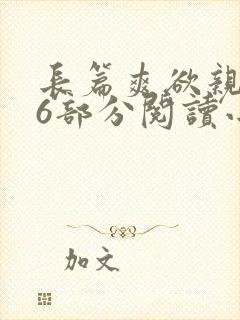 長篇爽欲親
6部分閱讀小
加文